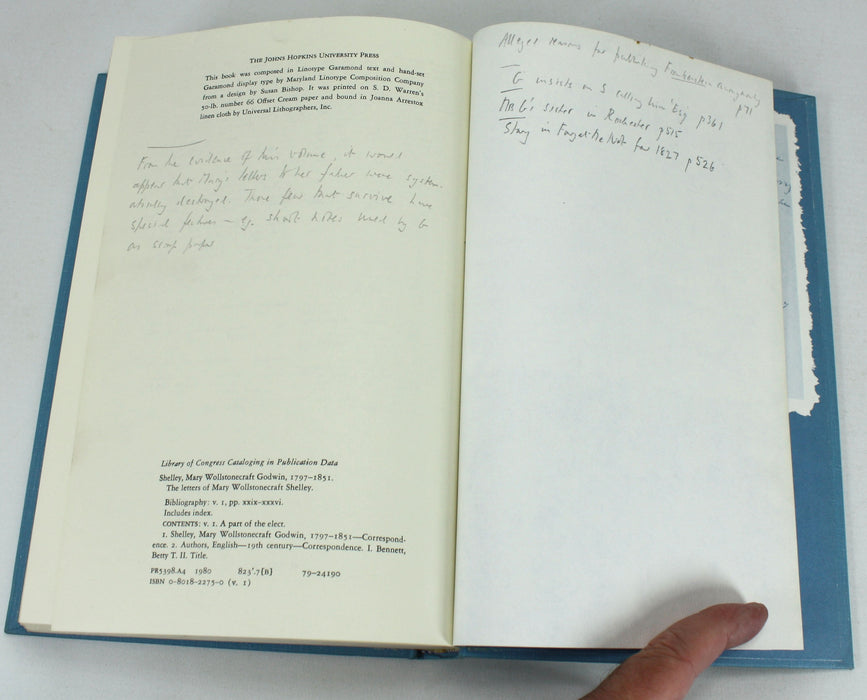 THE JOHNS HOPKINS UNIVERSITY PRESS
This book was composed in Linotype Garamond text and hand-set
Garamond display type by Maryland Linotype Composition Company
from a design by Susan Bishop. It was printed on S. D. Warren's
50-lb. number 66 Offset Cream paper and bound in Joanna Arrestox
linen cloth by Universal Lithographers, Inc.
From the evidence of this volume, it would
appear that Mary's letters to her father were system-
atically destroyed. Those few that survive have
special features – eg. short notes used by G
as scrap paper
Library of Congress Cataloging in Publication Data
Shelley, Mary Wollstonecraft Godwin, 1797–1851.
The letters of Mary Wollstonecraft Shelley.
Bibliography: v. 1, pp. xxix–xxxvi.
Includes index.
CONTENTS: v. 1. A part of the elect.
1. Shelley, Mary Wollstonecraft Godwin, 1797–1851—Correspond-
ence. 2. Authors, English—19th century—Correspondence. I. Bennett,
Betty T. II. Title.
PR5398.A4 1980 823'.7[B] 79-24190
ISBN 0-8018-2275-0 (v. 1)
Alleged reasons for publishing Frankenstein anonymously
p71
G insists on S calling him 'Esq' p361
Mrs G's sister in Rochester p515
Story in Forget-Me-Not for 1827 p526